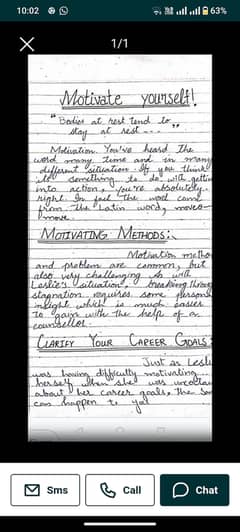 10:02
63%
1/1
Motivate yourself!
"Bodies at rest tend to
stay at rest - - - "
Motivation. You've heard the
word many time and in many
different situation. If you think
do something to do with getting
into action, you're absolutely
right. In fact the word come
from the Latin word, moveo-
move.
MOTIVATING METHODS:
Motivation method
and problem are common, but
also very challenging. As with
Leslie's situation, breaking through
stagnation requires some personal
insight which is much easier
to gain with the help of a
counsellor.
CLARIFY YOUR CAREER GOALS:
Just as Lesli
was having difficulty motivating
herself when she was uncertai
about her career goals, the sa
can happen to you
Sms
Call
Chat